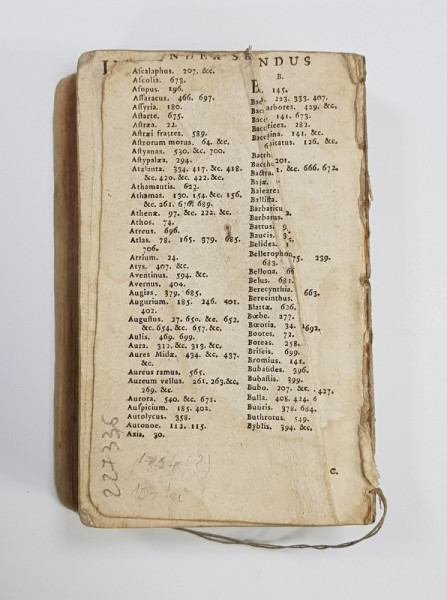 INDEX SE NDUS
Ascalaphus. 207. &c.
Ascolia. 673.
Asopus. 196.
Assaracus. 466. 697.
Assyria. 180.
Astarte. 675.
Astræa. 22.
Astræi fratres. 589.
Astrorum motus. 64. &c.
Astyanax. 530. &c. 700.
Astypalæa. 294.
Atalanta. 334. 417. &c. 418.
&c. 420. &c. 422. &c.
Athamantis. 623.
Athamas. 130. 154. &c. 156.
&c. 261. 676. 689.
Athenæ. 97. &c. 222. &c.
Athos. 74.
Atreus. 696.
Atlas. 78. 165. 379. 685.
706.
Atrium. 24.
Atys. 407. &c.
Aventinus. 594. &c.
Avernus. 404.
Augias. 379. 685.
Augurium. 185. 246. 401.
402.
Augustus. 27. 650. &c. 652.
&c. 654. &c. 657. &c.
Aulis. 469. 699.
Aura. 312. &c. 313. &c.
Aures Midæ. 434. &c. 437.
&c.
Aureus ramus. 565.
Aureum vellus. 261. 263. &c.
269. &c.
Aurora. 540. &c. 671.
Auspicium. 185. 402.
Autolycus. 358.
Autonoe. 112. 115.
Axis. 30.
B.
145.
223. 333. 407.
arbores. 429. &c.
141. 673.
282.
141. &c.
126. &c.
Bacch
201.
Bactra. &c. 666. 672.
Bajæ
Baleares
Ballista.
Barbaricu
Barbarus.
Battus. 9
Baucis.
Belides.
Bellerophon 75. 239.
683.
Bellona. 66
Belus. 681.
Berecynthia. 663.
Berecinthus.
Blattæ. 626.
Bœbe. 277.
Bœotia. 34. 692.
Bootes. 72.
Boreas. 258.
Briseis. 699.
Bromius. 141.
Bubasides. 396.
Bubastis. 399.
Bubo. 207. &c. 427.
Bulla. 408. 424. 6
Busiris. 378. 684.
Buthrotus. 549.
Byblis. 394. &c.
C.
227336